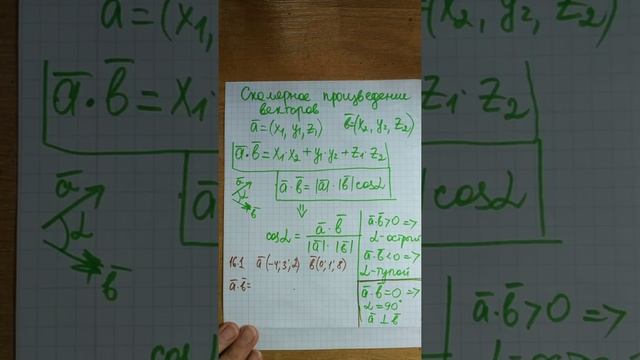 Скалярное произведение
векторов
a̅=(x₁, y₁, z₁) b̅=(x₂, y₂, z₂)
a̅·b̅=x₁·x₂+y₁·y₂+z₁·z₂
a̅·b̅=|a̅|·|b̅|cosα
a̅
α
b̅
⇓
cosα = a̅·b̅ / |a̅|·|b̅|
a̅·b̅>0 =>
α-острый
a̅·b̅<0 =>
α-тупой
a̅·b̅=0 =>
α=90°
a̅⊥b̅
16.1 a̅(-4;3;2) b̅(0;1;8)
a̅·b̅=